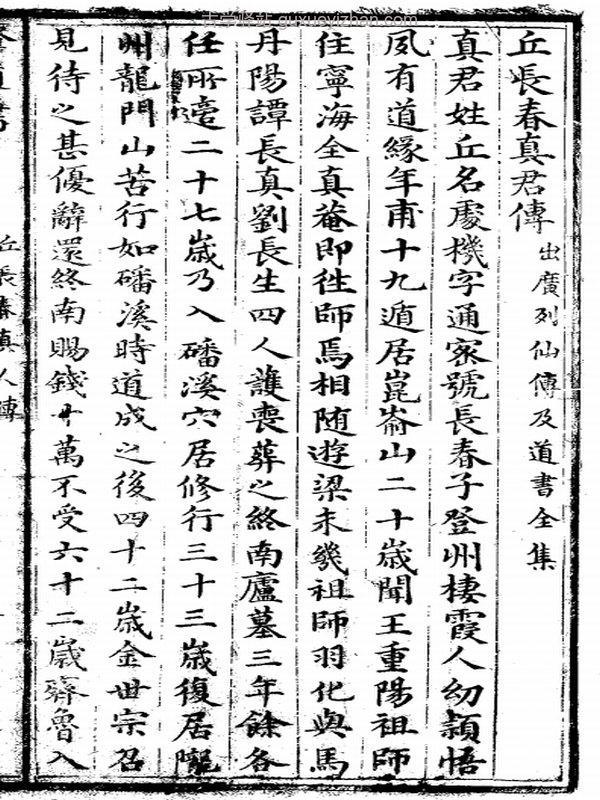 古学驿站 guxueyizhan.com
丘長春真君傳 出廣列仙傳及道書全集
真君姓丘名處機字通宻號長春子登州棲霞人幼頴悟
夙有道緣年甫十九遁居崑崙山二十歲聞王重陽祖師
住寧海全真菴即徃師焉相随遊梁未幾祖師羽化與馬
丹陽譚長真劉長生四人護喪葬之終南廬墓三年餘各
任所適二十七歲乃入磻溪穴居修行三十三歲復居隴
州龍門山苦行如磻溪時道成之後四十二歲金世宗召
見待之甚優辭還終南賜錢十萬不受六十二歲齊魯入
丘長春真人傳